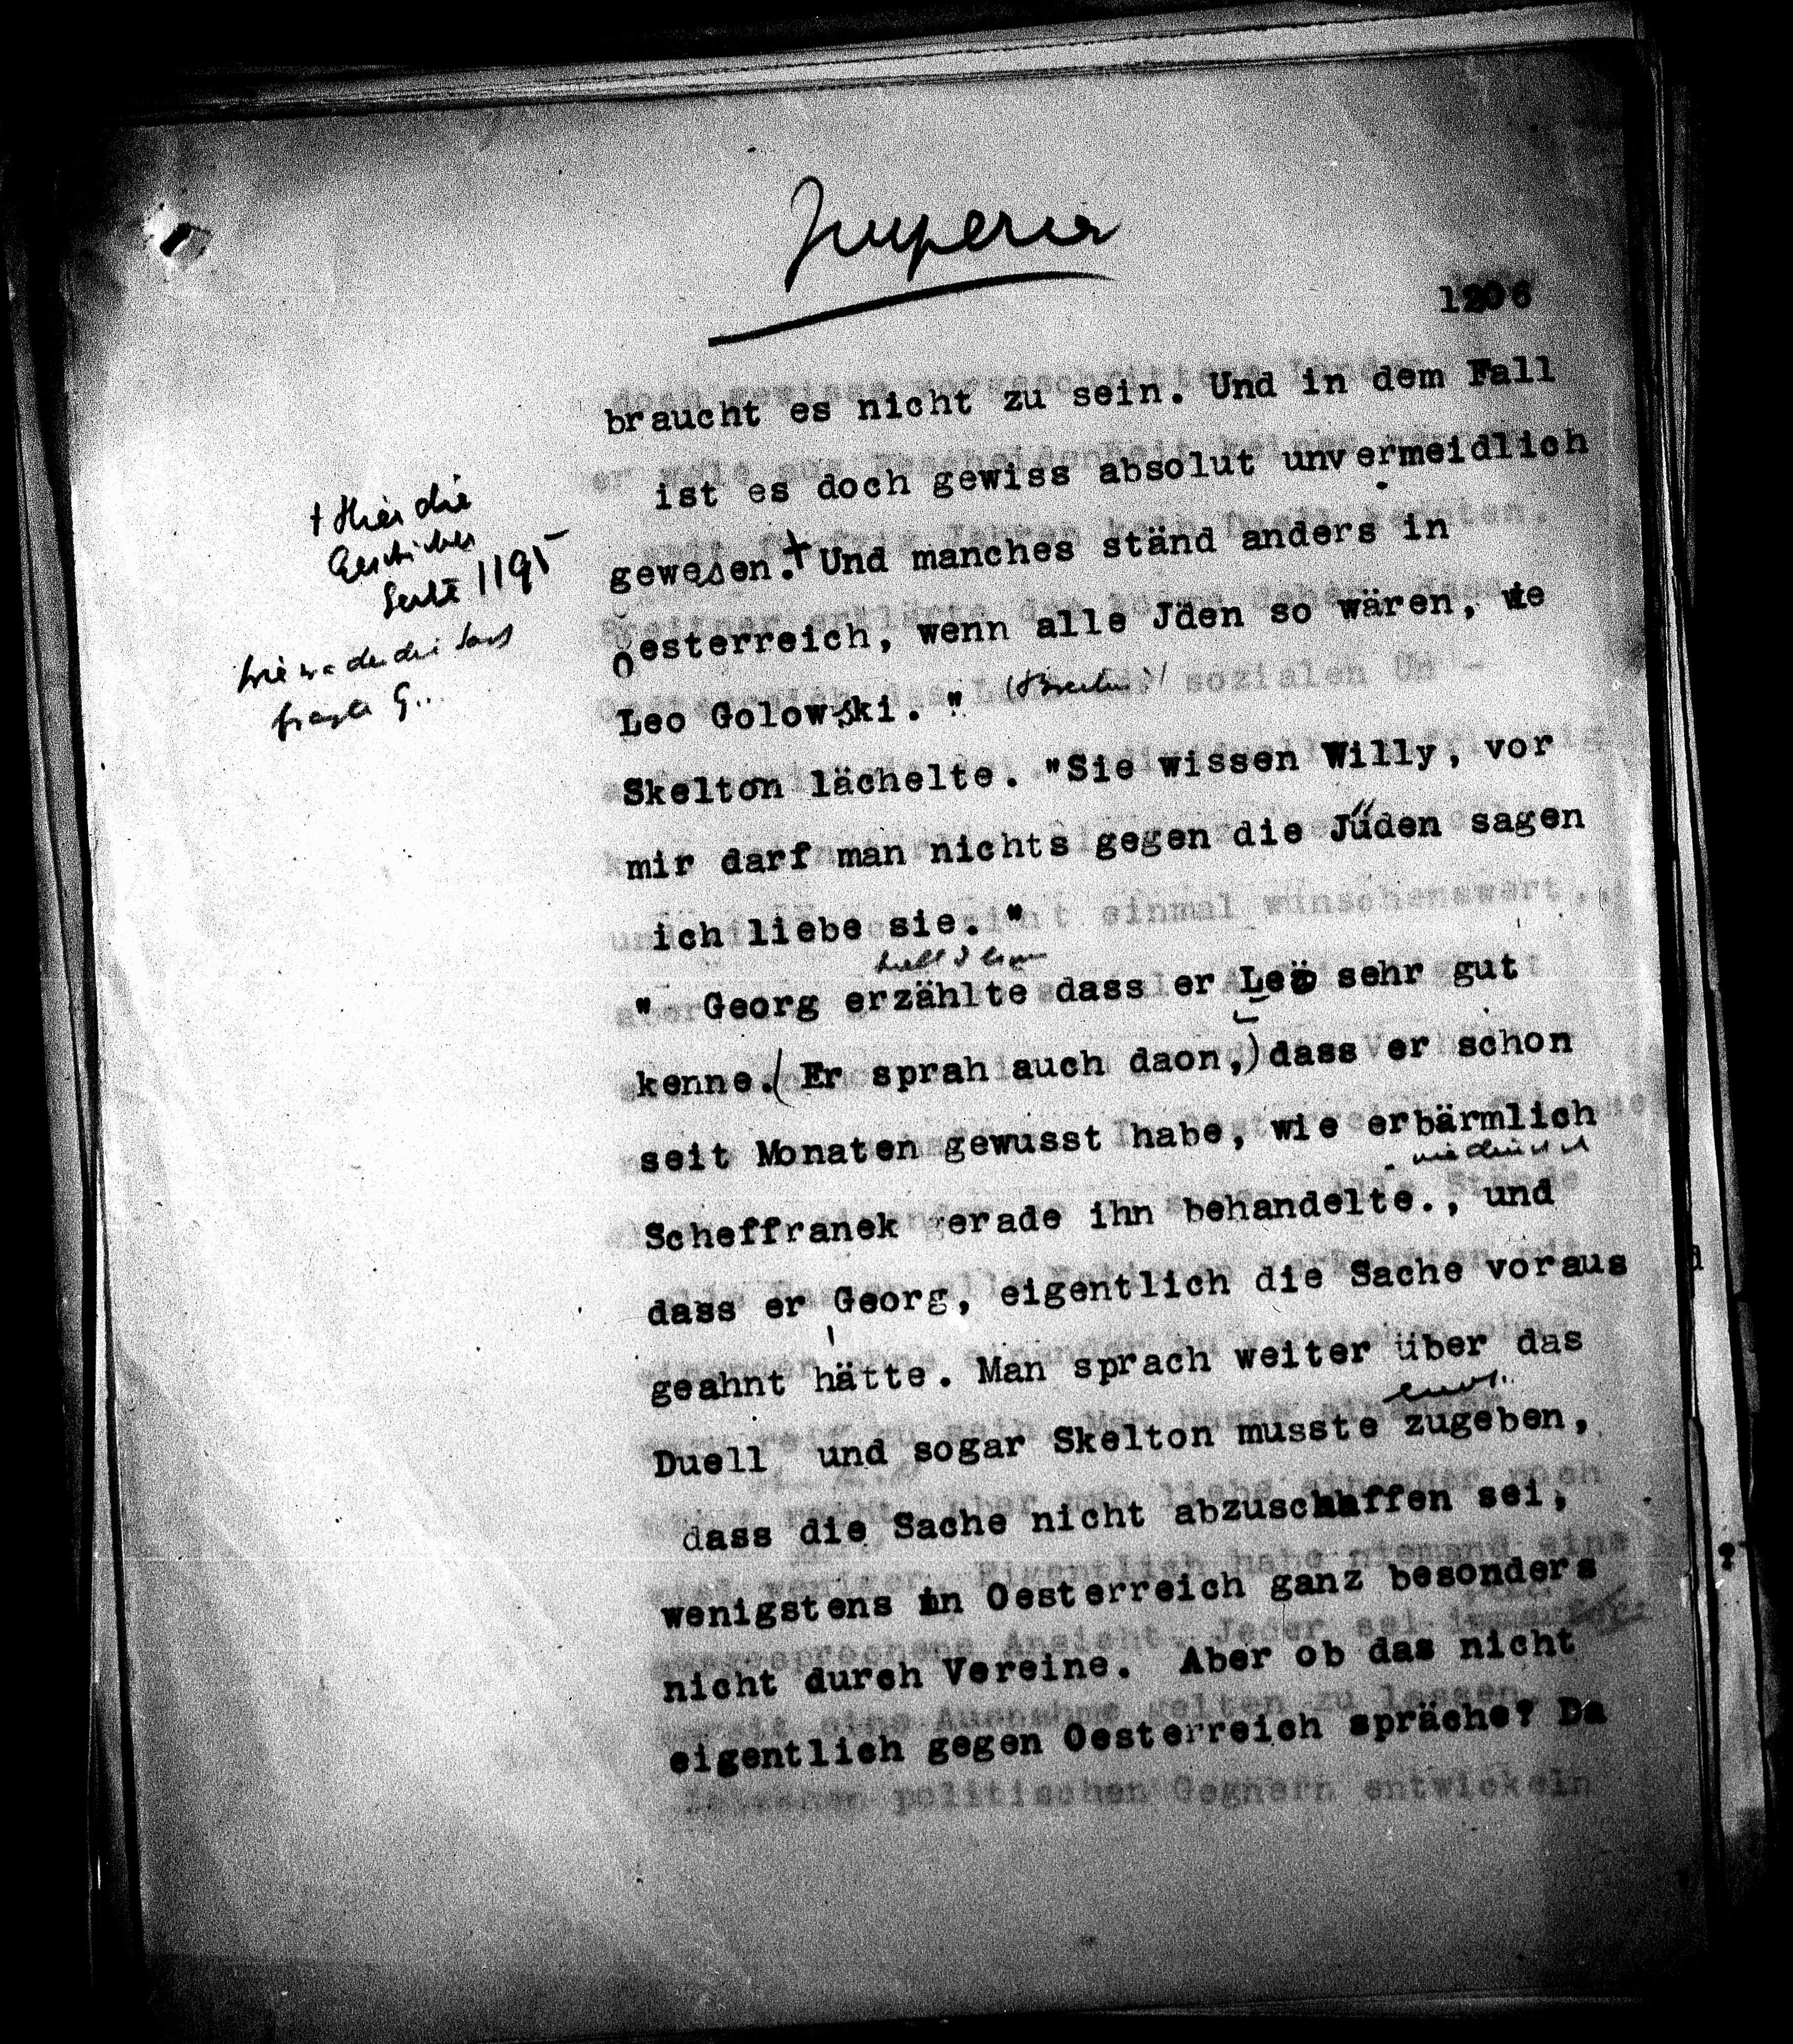 1206
braucht es nicht zu sein. Und in dem Fall
ist es doch gewiss absolut unvermeidlich
+ Hier die
Geschichte
Seite 1195
gewesen.+ Und manches ständ anders in
Oesterreich, wenn alle Jden so wären, wie
fragte G..
Leo Golowski. "
Skelton lächelte. "Sie wissen Willy, vor
mir darf man nichts gegen die Jüden sagen
ich liebe sie. "
" Georg erzählte dass er Leo sehr gut
kenne.( Er sprah auch daon,) dass er schon
seit Monaten gewusst habe, wie erbärmlich
Scheffranek gerade ihn behandelte., und
dass er Georg, eigentlich die Sache voraus
geahnt hätte. Man sprach weiter über das
Duell und sogar Skelton musste zugeben,
dass die Sache nicht abzuschaffen sei,
wenigstens in Oesterreich ganz besonders
nicht durch Vereine. Aber ob das nicht
eigentlich gegen Oesterreich spräche? Da